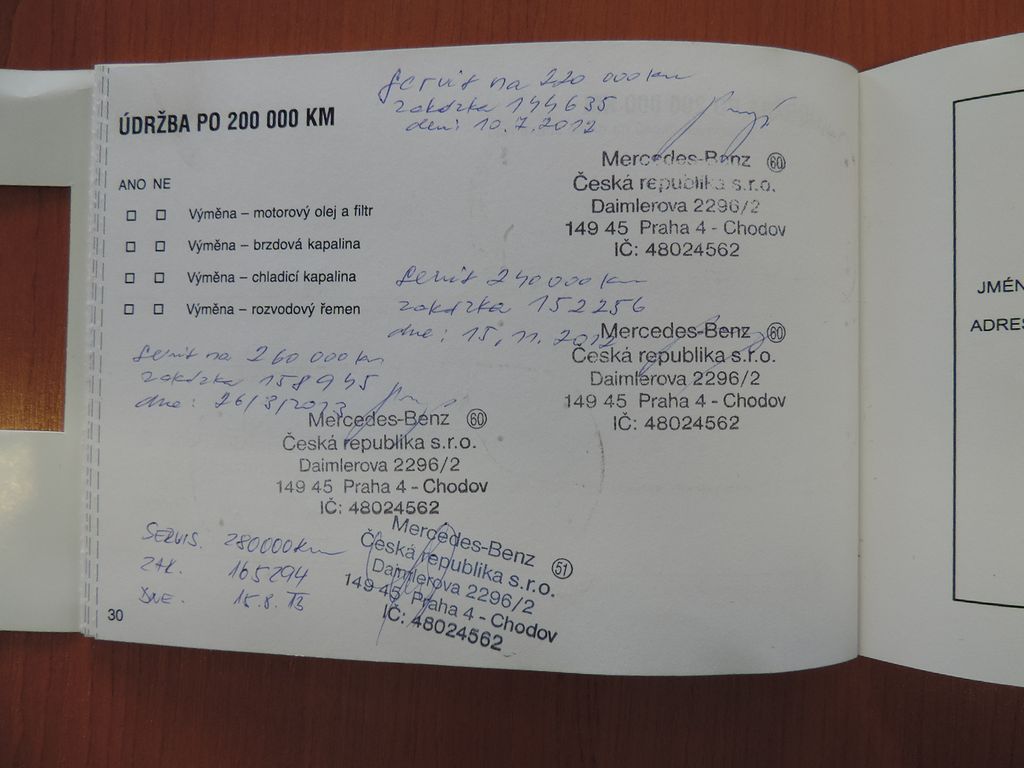 servis na 220 000 km
zakázka 144635
den: 10.7.2012
ÚDRŽBA PO 200 000 KM
Mercedes-Benz 60
Česká republika s.r.o.
Daimlerova 2296/2
149 45 Praha 4 - Chodov
IČ: 48024562
ANO NE
Výměna – motorový olej a filtr
Výměna – brzdová kapalina
Výměna – chladicí kapalina
Výměna – rozvodový řemen
servis 240000 km
zakázka 152256
dne: 15.11.2012
Mercedes-Benz 60
Česká republika s.r.o.
Daimlerova 2296/2
149 45 Praha 4 - Chodov
IČ: 48024562
servis na 260 000 km
zakázka 158945
dne: 26/3/2013
Mercedes-Benz 60
Česká republika s.r.o.
Daimlerova 2296/2
149 45 Praha 4 - Chodov
IČ: 48024562
SERVIS. 280000 km
ZAK. 165294
DNE. 15.8.13
Mercedes-Benz 51
Česká republika s.r.o.
Daimlerova 2296/2
149 45 Praha 4 - Chodov
IČ: 48024562
30
JMÉN
ADRES